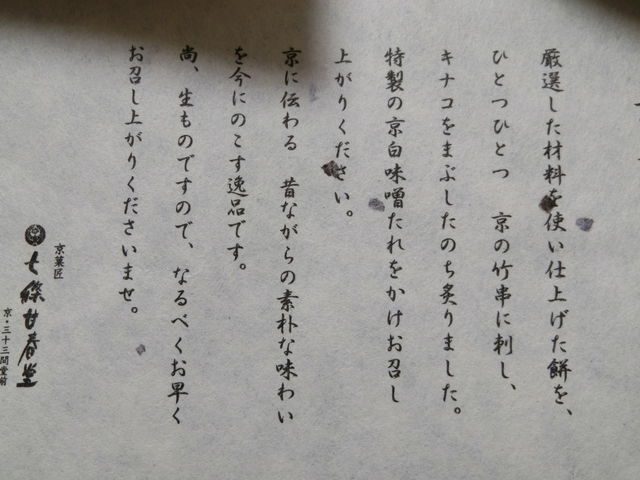 厳選した材料を使い仕上げた餅を、
ひとつひとつ 京の竹串に刺し、
キナコをまぶしたのち炙りました。
特製の京白味噌たれをかけお召し
上がりください。
京に伝わる 昔ながらの素朴な味わい
を今にのこす逸品です。
尚、生ものですので、なるべくお早く
お召し上がりくださいませ。
京菓匠
七條甘春堂
京・三十三間堂前